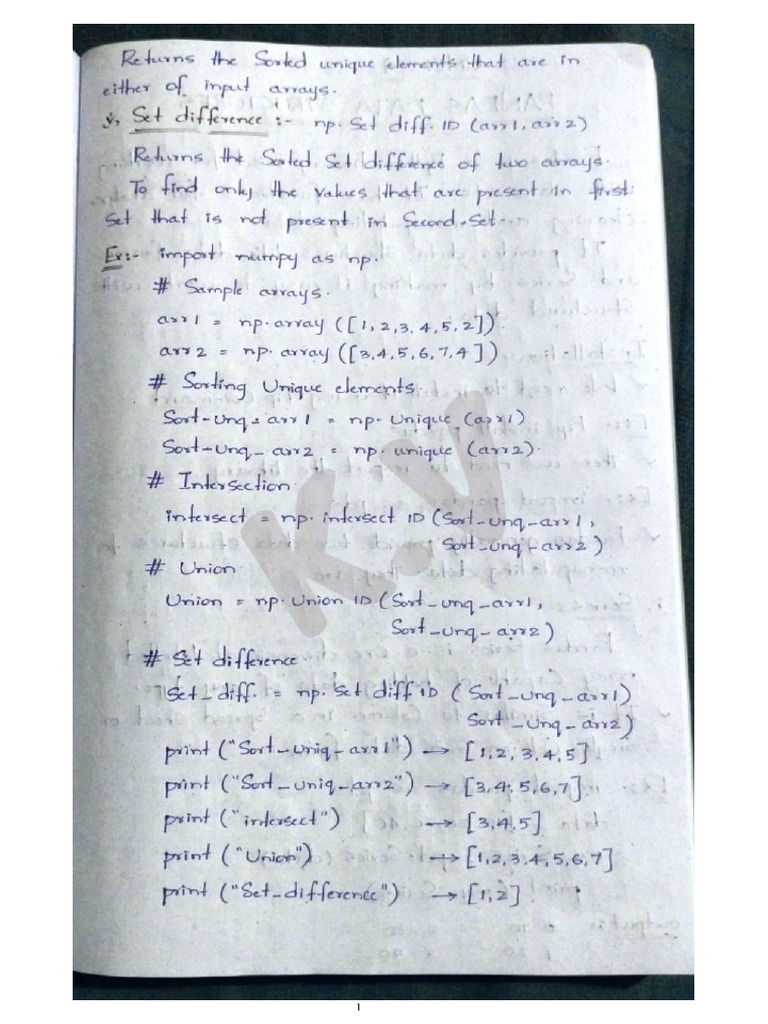 Returns the Sorted unique elements that are in
either of input arrays.
Set difference :- np. Set diff. 1D (arr1, arr2)
Returns the Sorted Set difference of two arrays.
To find only the values that are present in first
set that is not present in Second Set.
Ex:- import numpy as np.
# Sample arrays.
arr1 = np.array ([1,2,3,4,5,2])
arr2 = np. array ([3,4,5,6,7,4])
# Sorting Unique elements.
Sort-unq-arr1 = np. Unique (arr1)
Sort-unq-arr2 = np. unique (arr2).
# Intersection
intersect = np. intersect 1D (Sort-unq-arr1,
Sort-unq-arr2)
# Union
Union = np. Union 1D (Sort-unq-arr1,
Sort-unq-arr2)
# Set difference
Set-diff. = np. Set diff 1D (Sort-unq-arr1)
Sort-unq-arr2)
print ("Sort-uniq-arr1") → [1,2,3,4,5]
print ("Sort-uniq-arr2") → [3,4,5,6,7]
print ("intersect") → [3,4,5]
print ("Union") → [1,2,3,4,5,6,7]
print ("Set-difference") → [1,2]
K.V
1